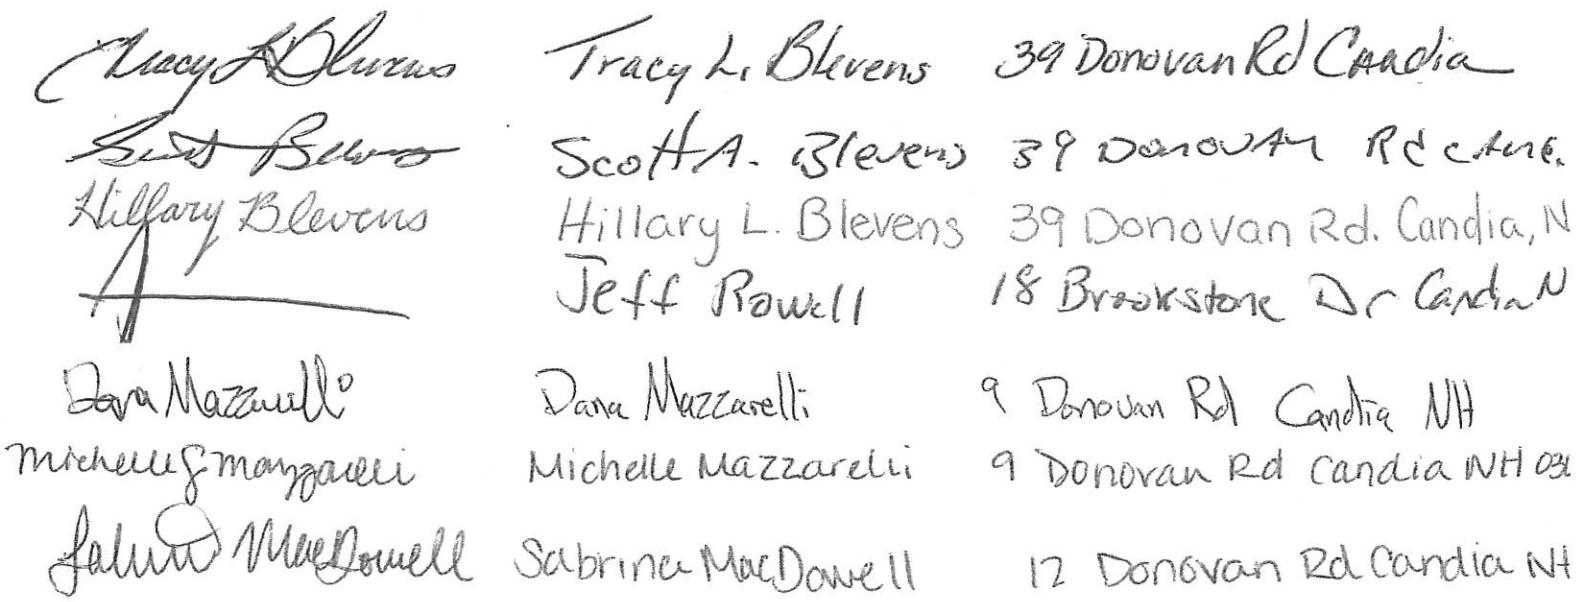 Tracy L Blevens Tracy L. Blevens 39 Donovan Rd Candia
Scott Blevens Scott A. Blevens 39 Donovan Rd
Hillary Blevens Hillary L. Blevens 39 Donovan Rd. Candia, N
Jeff Rowell 18 Brookstone Dr Candia N
Dana Mazzarelli Dana Mazzarelli 9 Donovan Rd Candia NH
Michelle J Mazzarelli Michelle Mazzarelli 9 Donovan Rd Candia NH 03
Sabrina MacDowell Sabrina MacDowell 12 Donovan Rd Candia NH